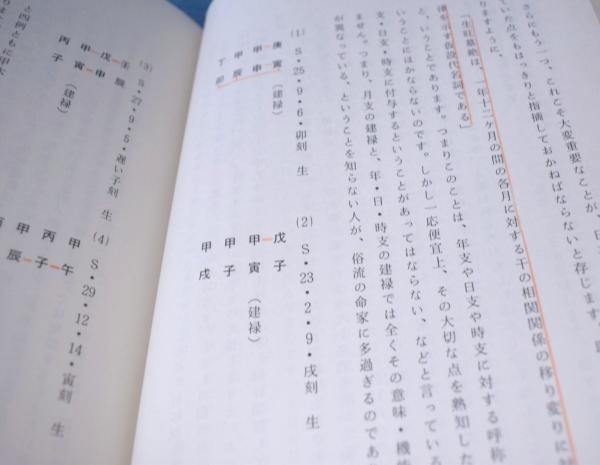 さらにもう一つ、これこそ大変重要なことが、
ていた点をもはっきりと指摘しておかねばならないと存じます。
りますように、
「生旺墓絶は、一年十二ヶ月の間の各月に対する干の相関関係の移り変りに対
仮設代名詞である」
と、いうことであります。つまりこのことは、年支や日支や時支に対する呼称
いうことにほかならないのです。しかし一応便宜上、その大切な点を熟知した
支・日支・時支に付与するということがあってはならない、などと言っている
ません。つまり、月支の建禄と、年・日・時支の建禄では全くその意味・機能
が異なっている、ということを知らない人が、俗流の命家に多過ぎるのであ
(1) S・25・9・6・卯刻 生
庚寅
甲申(建禄)
甲辰
丁卯
(2) S・23・2・9・戌刻 生
戊子
甲寅(建禄)
甲子
甲戌
(3) S・27・9・5・遅い子刻 生
壬辰
戊申
甲寅(建禄)
丙子
(4) S・29・12・14・寅刻 生
甲午
丙子
甲辰
と四柱ともに甲木